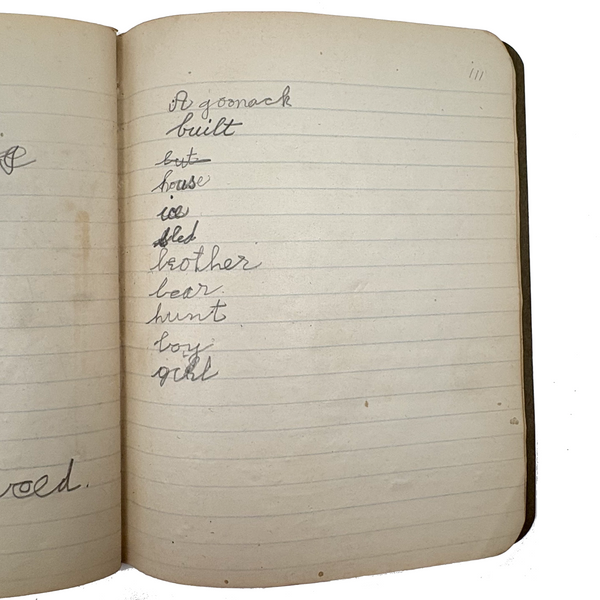 111
A goonack
built
but
house
ice
sled
brother
bear.
hunt
boy
girl